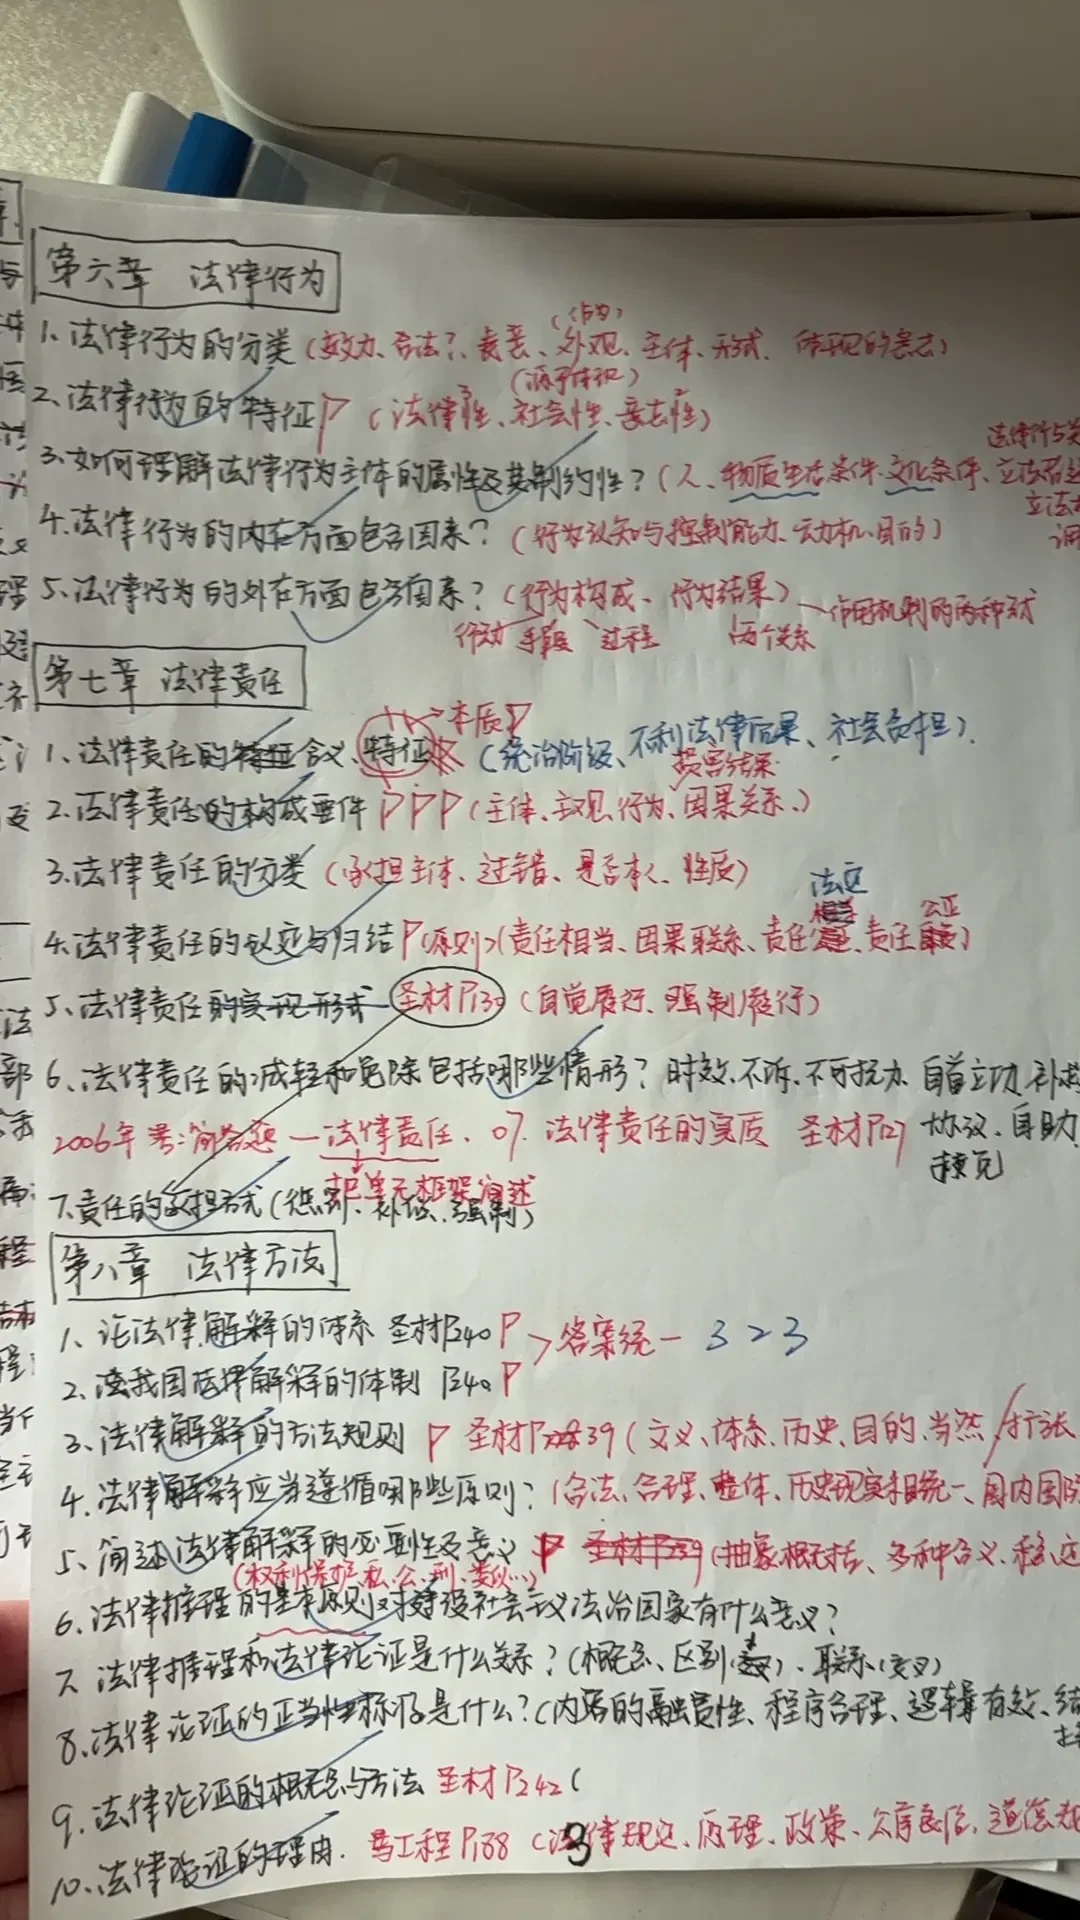 第六章 法律行为
(行为)
1.法律行为的分类(效力、合法?、表意、外观、主体、形式、体现的意志)
2、法律行为的特征P(法律性、社会性、意志性)
3.如何理解法律行为主体的属性及其制约性?(人、物质生活条件、文化条件、立法者
4.法律行为的内在方面包含因素?(行为认知与控制能力、动机、目的)
5.法律行为的外在方面包含因素?(行为构成、行为结果)—作用机制的两种形式
行动 手段 过程 两个关系
第七章 法律责任
本质P
1、法律责任的含义、特征(统治阶级、不利法律后果、社会负担).
损害结果
2.法律责任的构成要件PPP(主体、主观、行为、因果关系、)
3.法律责任的分类(承担主体、过错、是否本人、性质)
法定 公正
4.法律责任的认定与归结P(原则)(责任相当、因果联系、责任、责任)
5、法律责任的实现形式 圣材P130(自觉履行、强制履行)
6、法律责任的减轻和免除包括哪些情形?时效、不诉、不可抗力 自首立功 补救
2006年考:简答题—法律责任、07.法律责任的实质 圣材P127 协议、自助
把单元框架简述
7.责任的承担方式(惩罚、补偿、强制)
第八章 法律方法
1、论法律解释的体系 圣材P240 P>答案统一 3>3
2.法律解释的体制 P240 P
3、法律解释的方法规则 P 圣材P239(文义、体系、历史、目的、当然/扩张
4.法律解释应当遵循哪些原则?(合法、合理、整体、历史现实相统一、国内国际
5、简述法律解释的必要性及意义 P 圣材P239(抽象概括、多种含义、稳、
(权利保护、私、公、刑、类似…)
6.法律推理的基本原则对建设社会主义法治国家有什么意义?
7.法律推理和法律论证是什么关系?(概念、区别、联系(交叉)
8.法律论证的正当性标准是什么?(内容的融贯性、程序合理、逻辑有效、结
9.法律论证的概念与方法 圣材P242(
10、法律论证的理由. 马工程P188(法律规定、原理、政策、公序良俗、道德
3